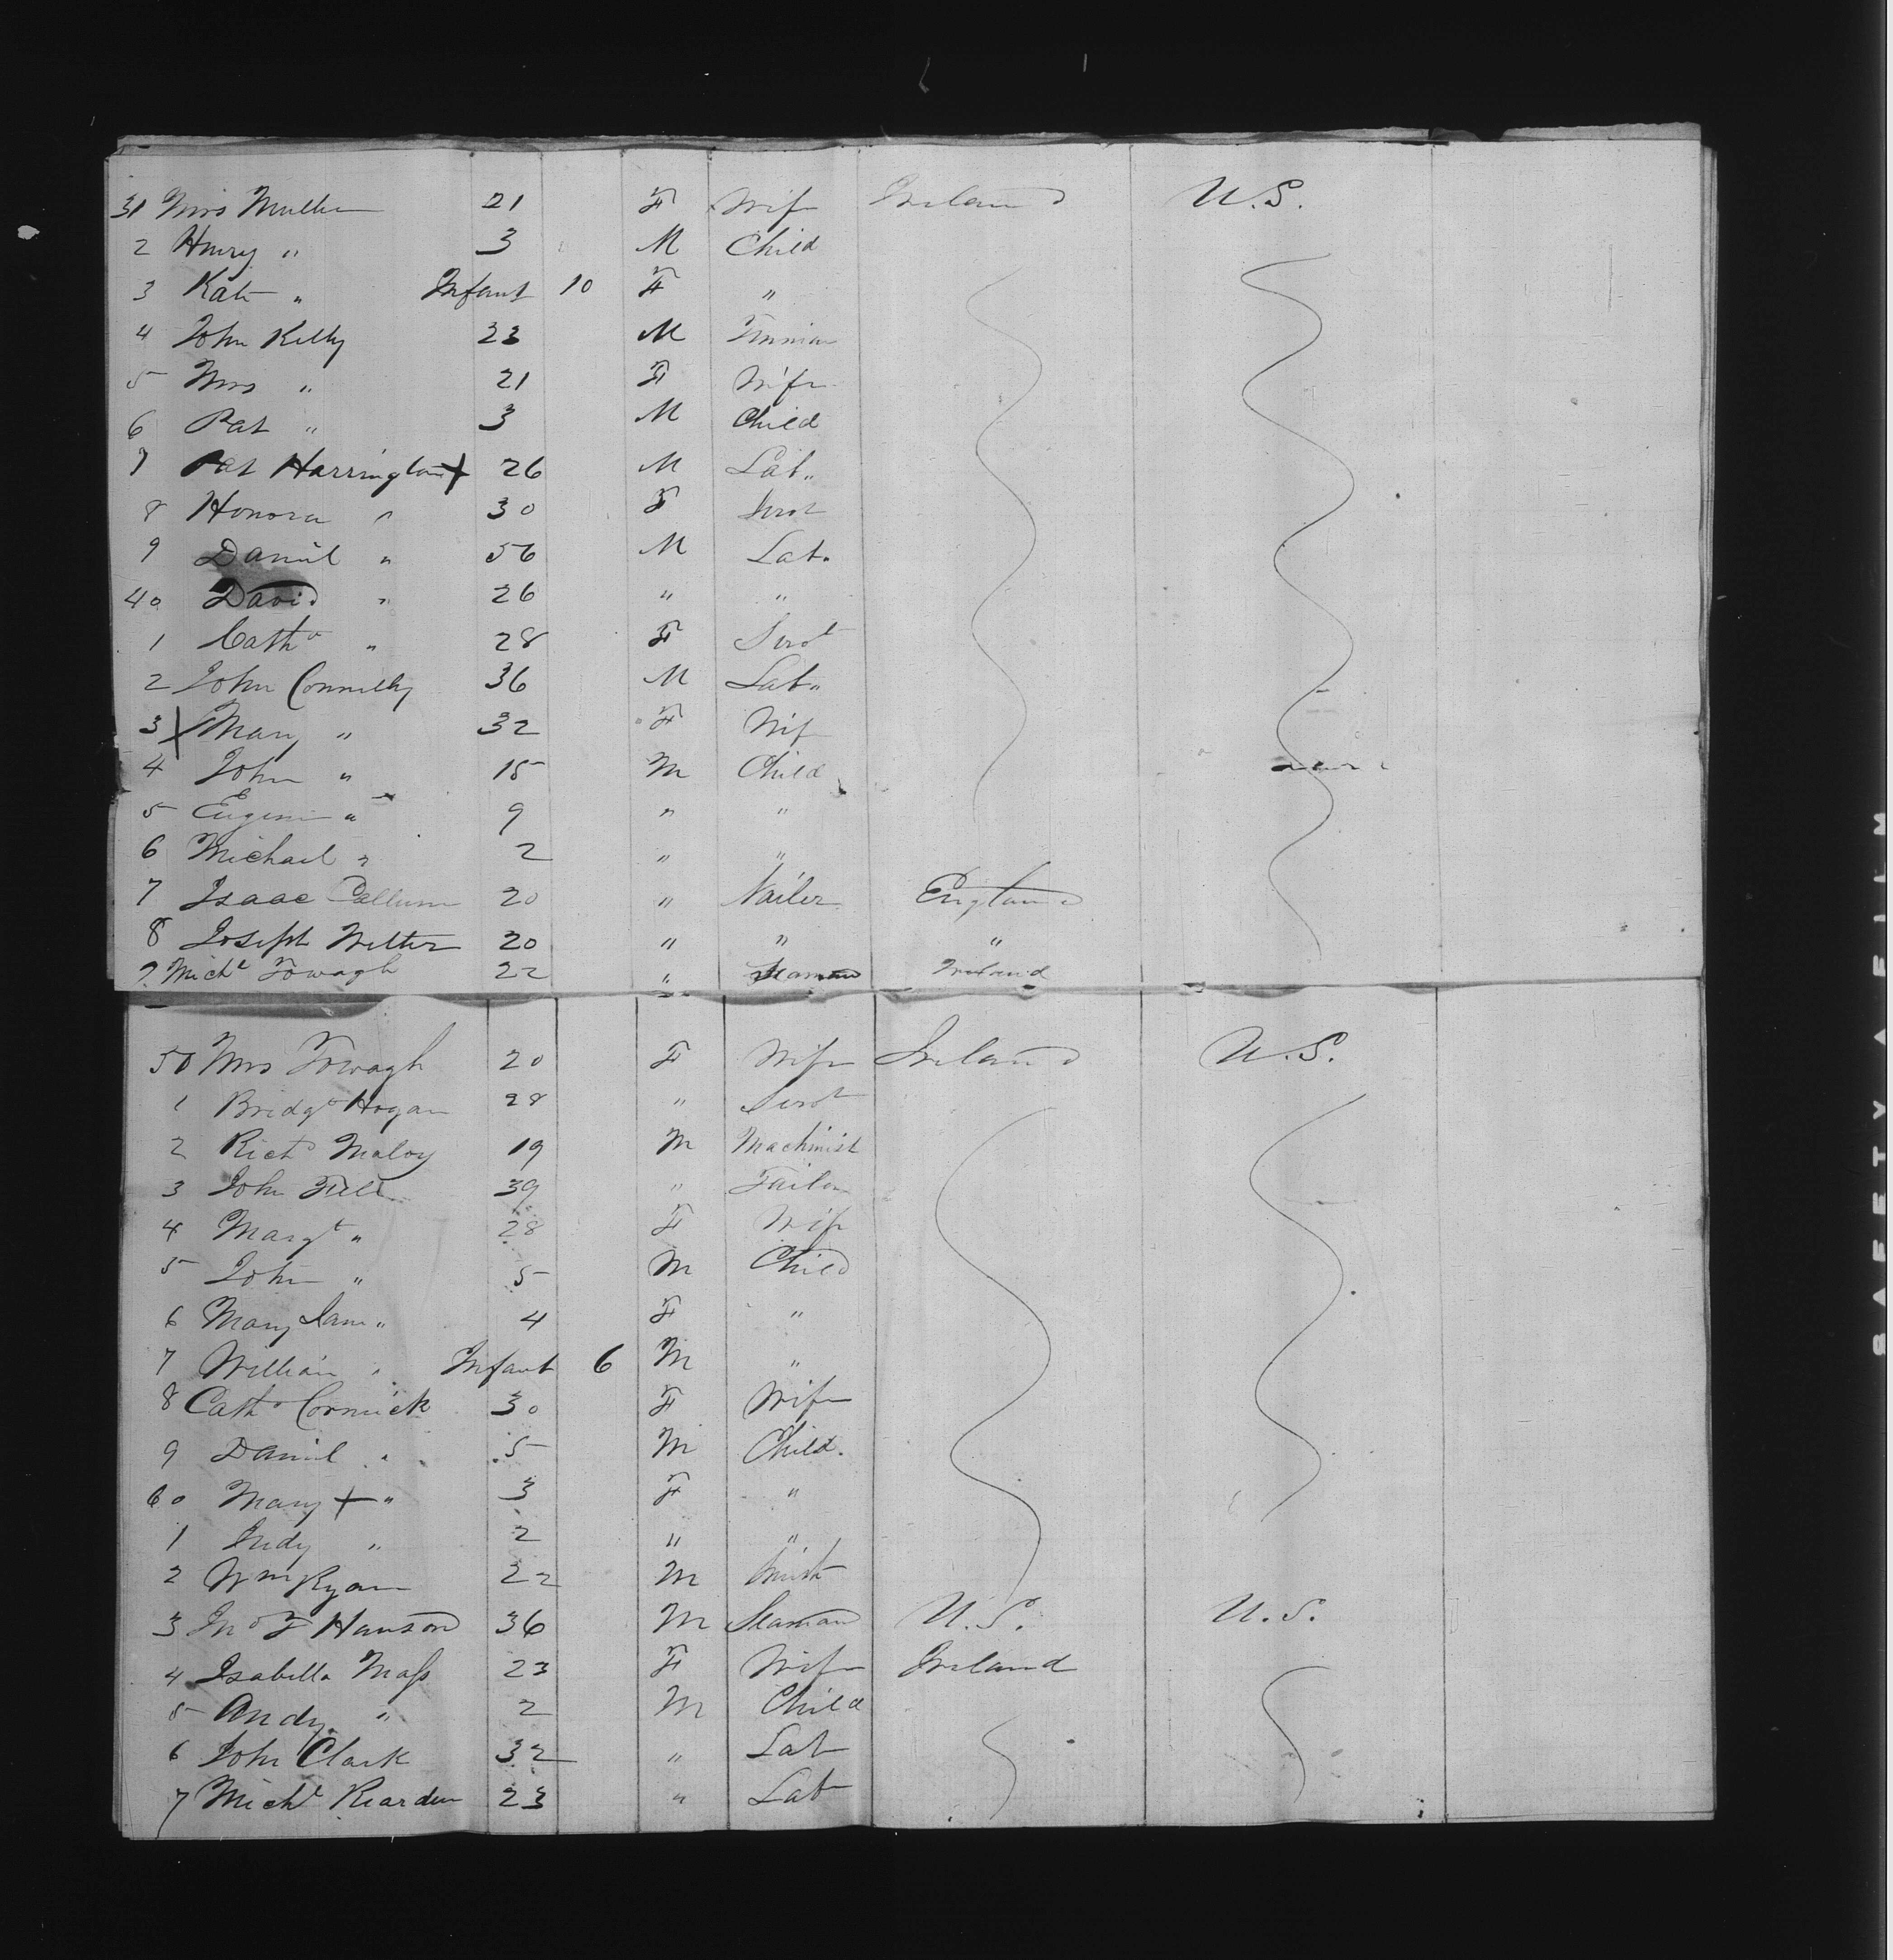 31 Mrs Mullen 21 F Wife Ireland U.S.
2 Henry " 3 M Child
3 Kate " Infant 10 F "
4 John Kelly 23 M
5 Mrs " 21 F Wife
6 Pat " 3 M Child
7 Pat Harrington + 26 M Lab"
8 Honora " 30 F Servt
9 Daniel " 56 M Lab.
40 David " 26 " "
1 Cathe " 28 F Servt
2 John Connelly 36 M Lab"
3 X Mary " 32 F Wife
4 John " 15 M Child
5 Eugene " 9 " "
6 Michael " 2 " "
7 Isaac Cellum 20 " Nailer England
8 Joseph Welter 20 " " "
9 Michl Towagh 22 " Seaman Ireland
50 Mrs Towagh 20 F Wife Ireland U.S.
1 Bridgt Hogan 28 " Servt
2 Richd Maloy 19 M Machinist
3 John Fell 39 " Tailor
4 Margt " 28 F Wife
5 John " 5 M Child
6 Mary Jane " 4 F "
7 William " Infant 6 M "
8 Cathe Cormick 30 F Wife
9 Daniel " 5 M Child.
60 Mary + " 3 F "
1 Judy " 2 " "
2 Wm Ryan 22 M Smith
3 Jno F Hanson 36 M Seaman U.S. U.S.
4 Isabella Mass 23 F Wife Ireland
5 Andy " 2 M Child
6 John Clark 32 " Lab
7 Michl Rearden 23 " Lab
SAFETY FILM